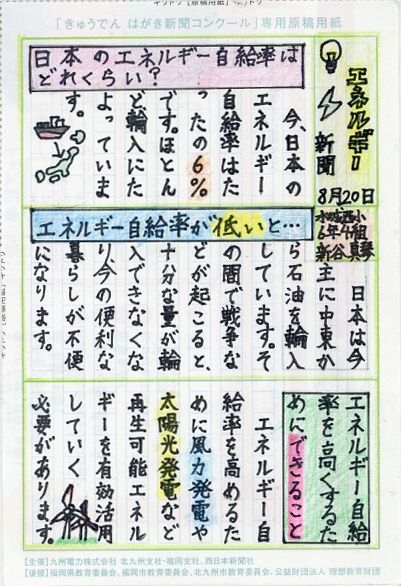 「きゅうでん はがき新聞コンクール」専用原稿用紙
エネルギー
新聞
8月20日
水城西小
6年4組
新谷真琴
日本のエネルギー自給率は
どれくらい?
今、日本の
エネルギー
自給率はた
ったの6%
です。ほとん
ど輸入にた
よっていま
す。
エネルギー自給率が低いと…
日本は今
主に中東か
ら石油を輸入
しています。そ
の間で戦争な
どが起こると、
十分な量が輪
入できなくな
り今の便利な
暮らしが不便
になります。
エネルギー自給
率を高くするた
めにできること
エネルギー自
給率を高めるた
めに風力発電や
太陽光発電など
再生可能エネル
ギーを有効活用
していく
必要があります。
[主催]九州電力株式会社 北九州支社・福岡支社、西日本新聞社
[後援]福岡県教育委員会、福岡市教育委員会、北九州市教育委員会、公益財団法人 理想教育財団